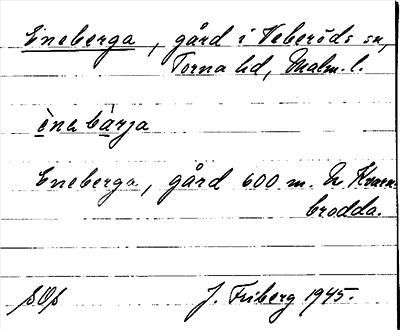 Eneberga, gård i Veberöds sn,
Torna hd, Malm. l.
ena bàrja
Eneberga, gård 600 m. N Kvarn-
brodda.
J. Friberg 1945.